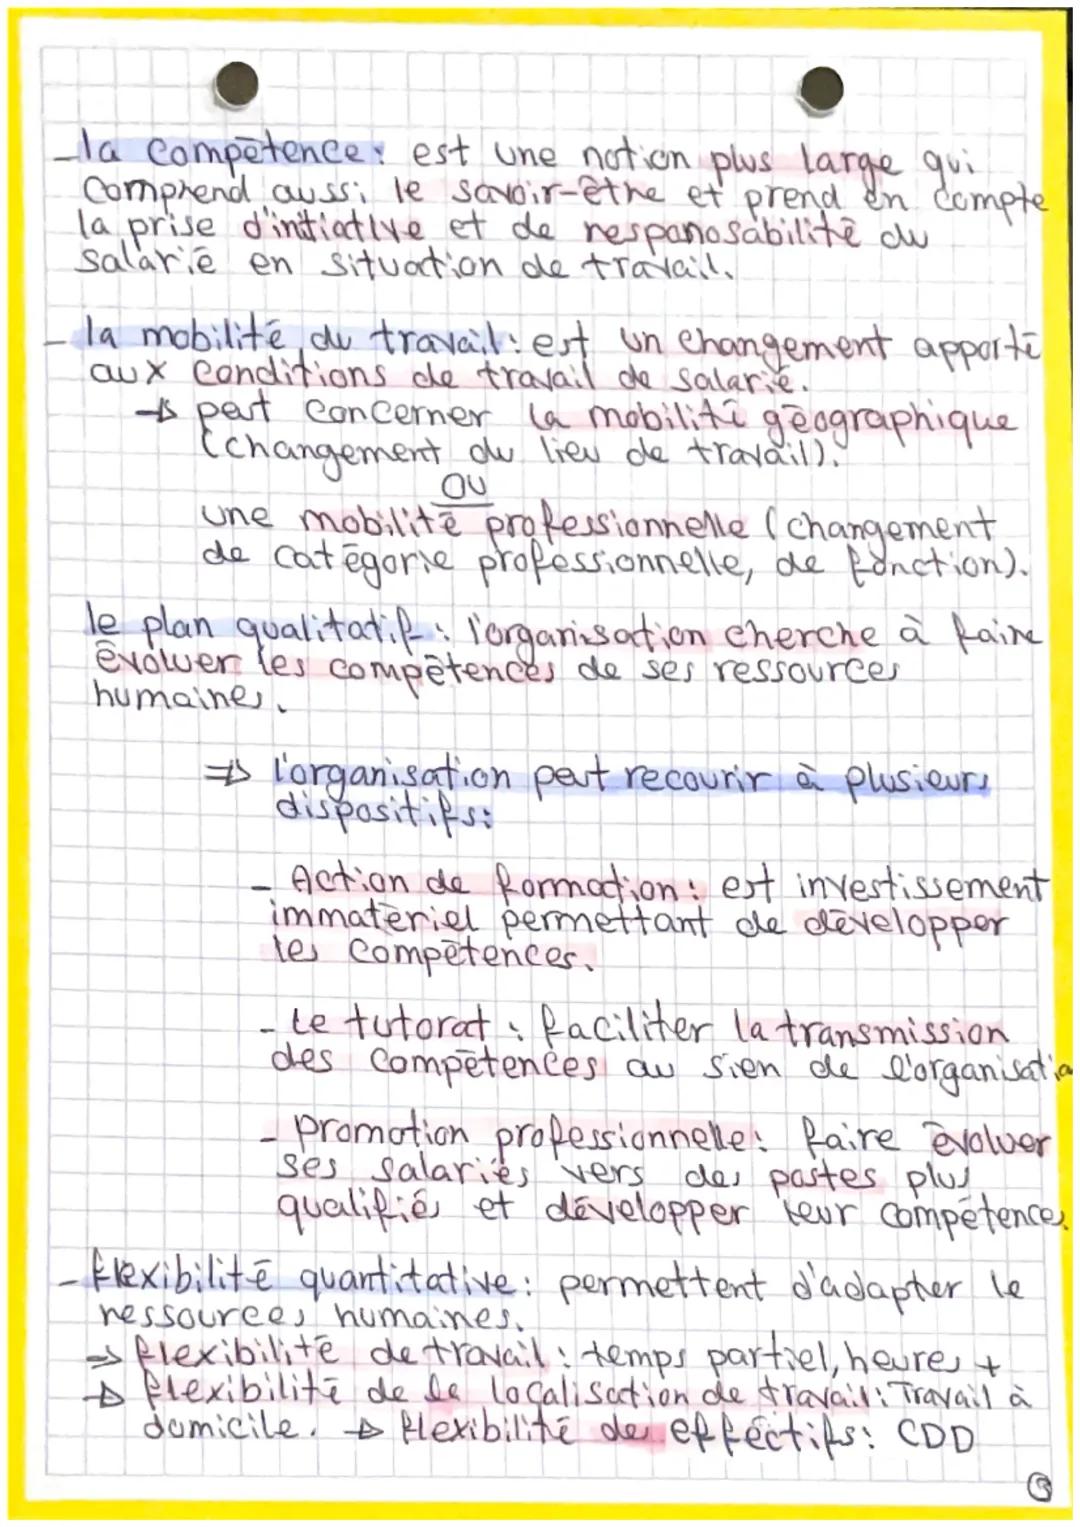 - la compétence : est une notion plus large qui
comprend aussi le savoir-être et prend en compte
la prise d'intiative et de respanosabilité du
salarié en situation de travail.
- la mobilité du travail : est un changement apporté
aux conditions de travail de salarié.
→ peut concerner la mobilité géographique
(changement du lieu de travail).
OU
une mobilité professionnelle (changement
de catégorie professionnelle, de fonction).
le plan qualitatif : l'organisation cherche à faire
évoluer les compétences de ses ressources
humaines.
⇒ l'organisation peut recourir à plusieurs
dispositifs :
- Action de formation : est investissement
immatériel permettant de développer
les compétences.
- Le tutorat : faciliter la transmission
des compétences au sien de l'organisatio
- promotion professionnelle : faire évoluer
ses salariés vers des postes plus
qualifiés et développer leur compétences.
- flexibilité quantitative : permettent d'adapter le
ressources humaines.
⇒ flexibilité de travail : temps partiel, heures +
→ flexibilité de la localisation de travail : Travail à
domicile. → flexibilité de effectifs : CDD
③